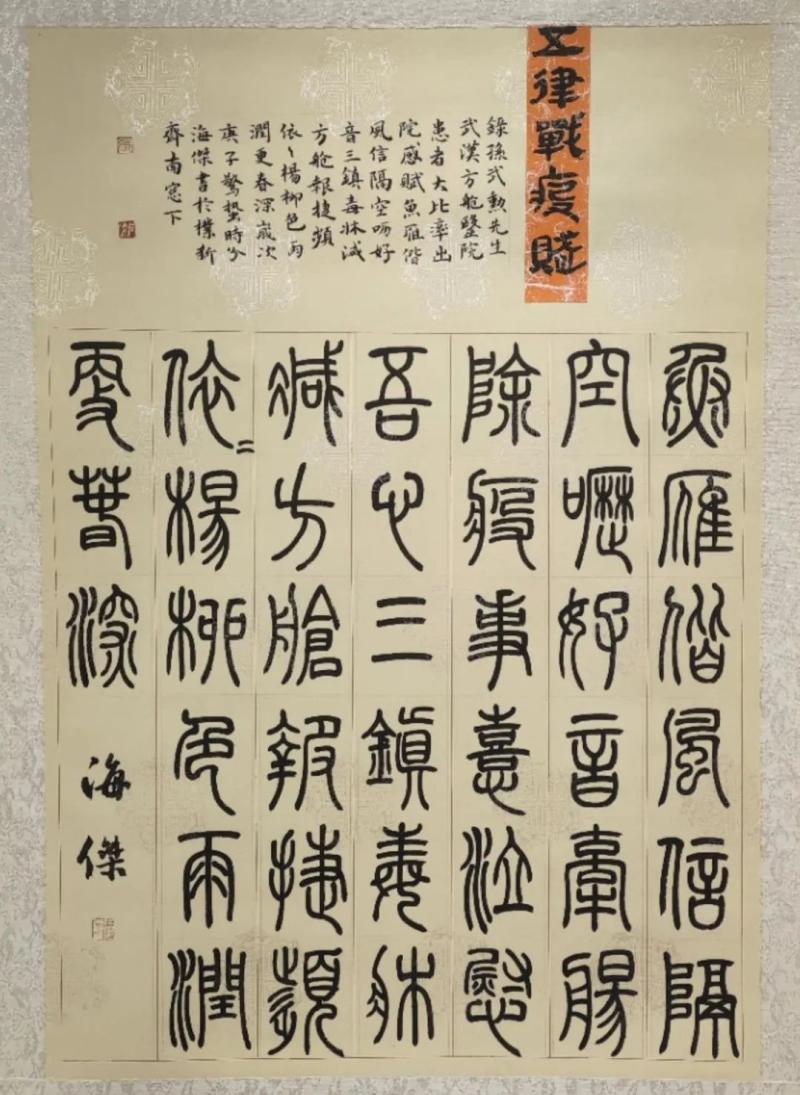 五律戰疫賦
錄孫武勲先生
武漢方艙醫院
患者大比率出
院感賦魚雁偕
風信隔空嚦好
音三鎮毒牀減
方艙報捷頻
依〻楊柳色雨
潤更春深歲次
庚子驚蟄時分
海傑書於樸斫
齋南窓下
魚雁偕風信隔
空嚦好音牽腸
除疫事喜泣慰
吾心三鎮毒牀
減方艙報捷頻
依〻楊柳色雨潤
更春深
海傑